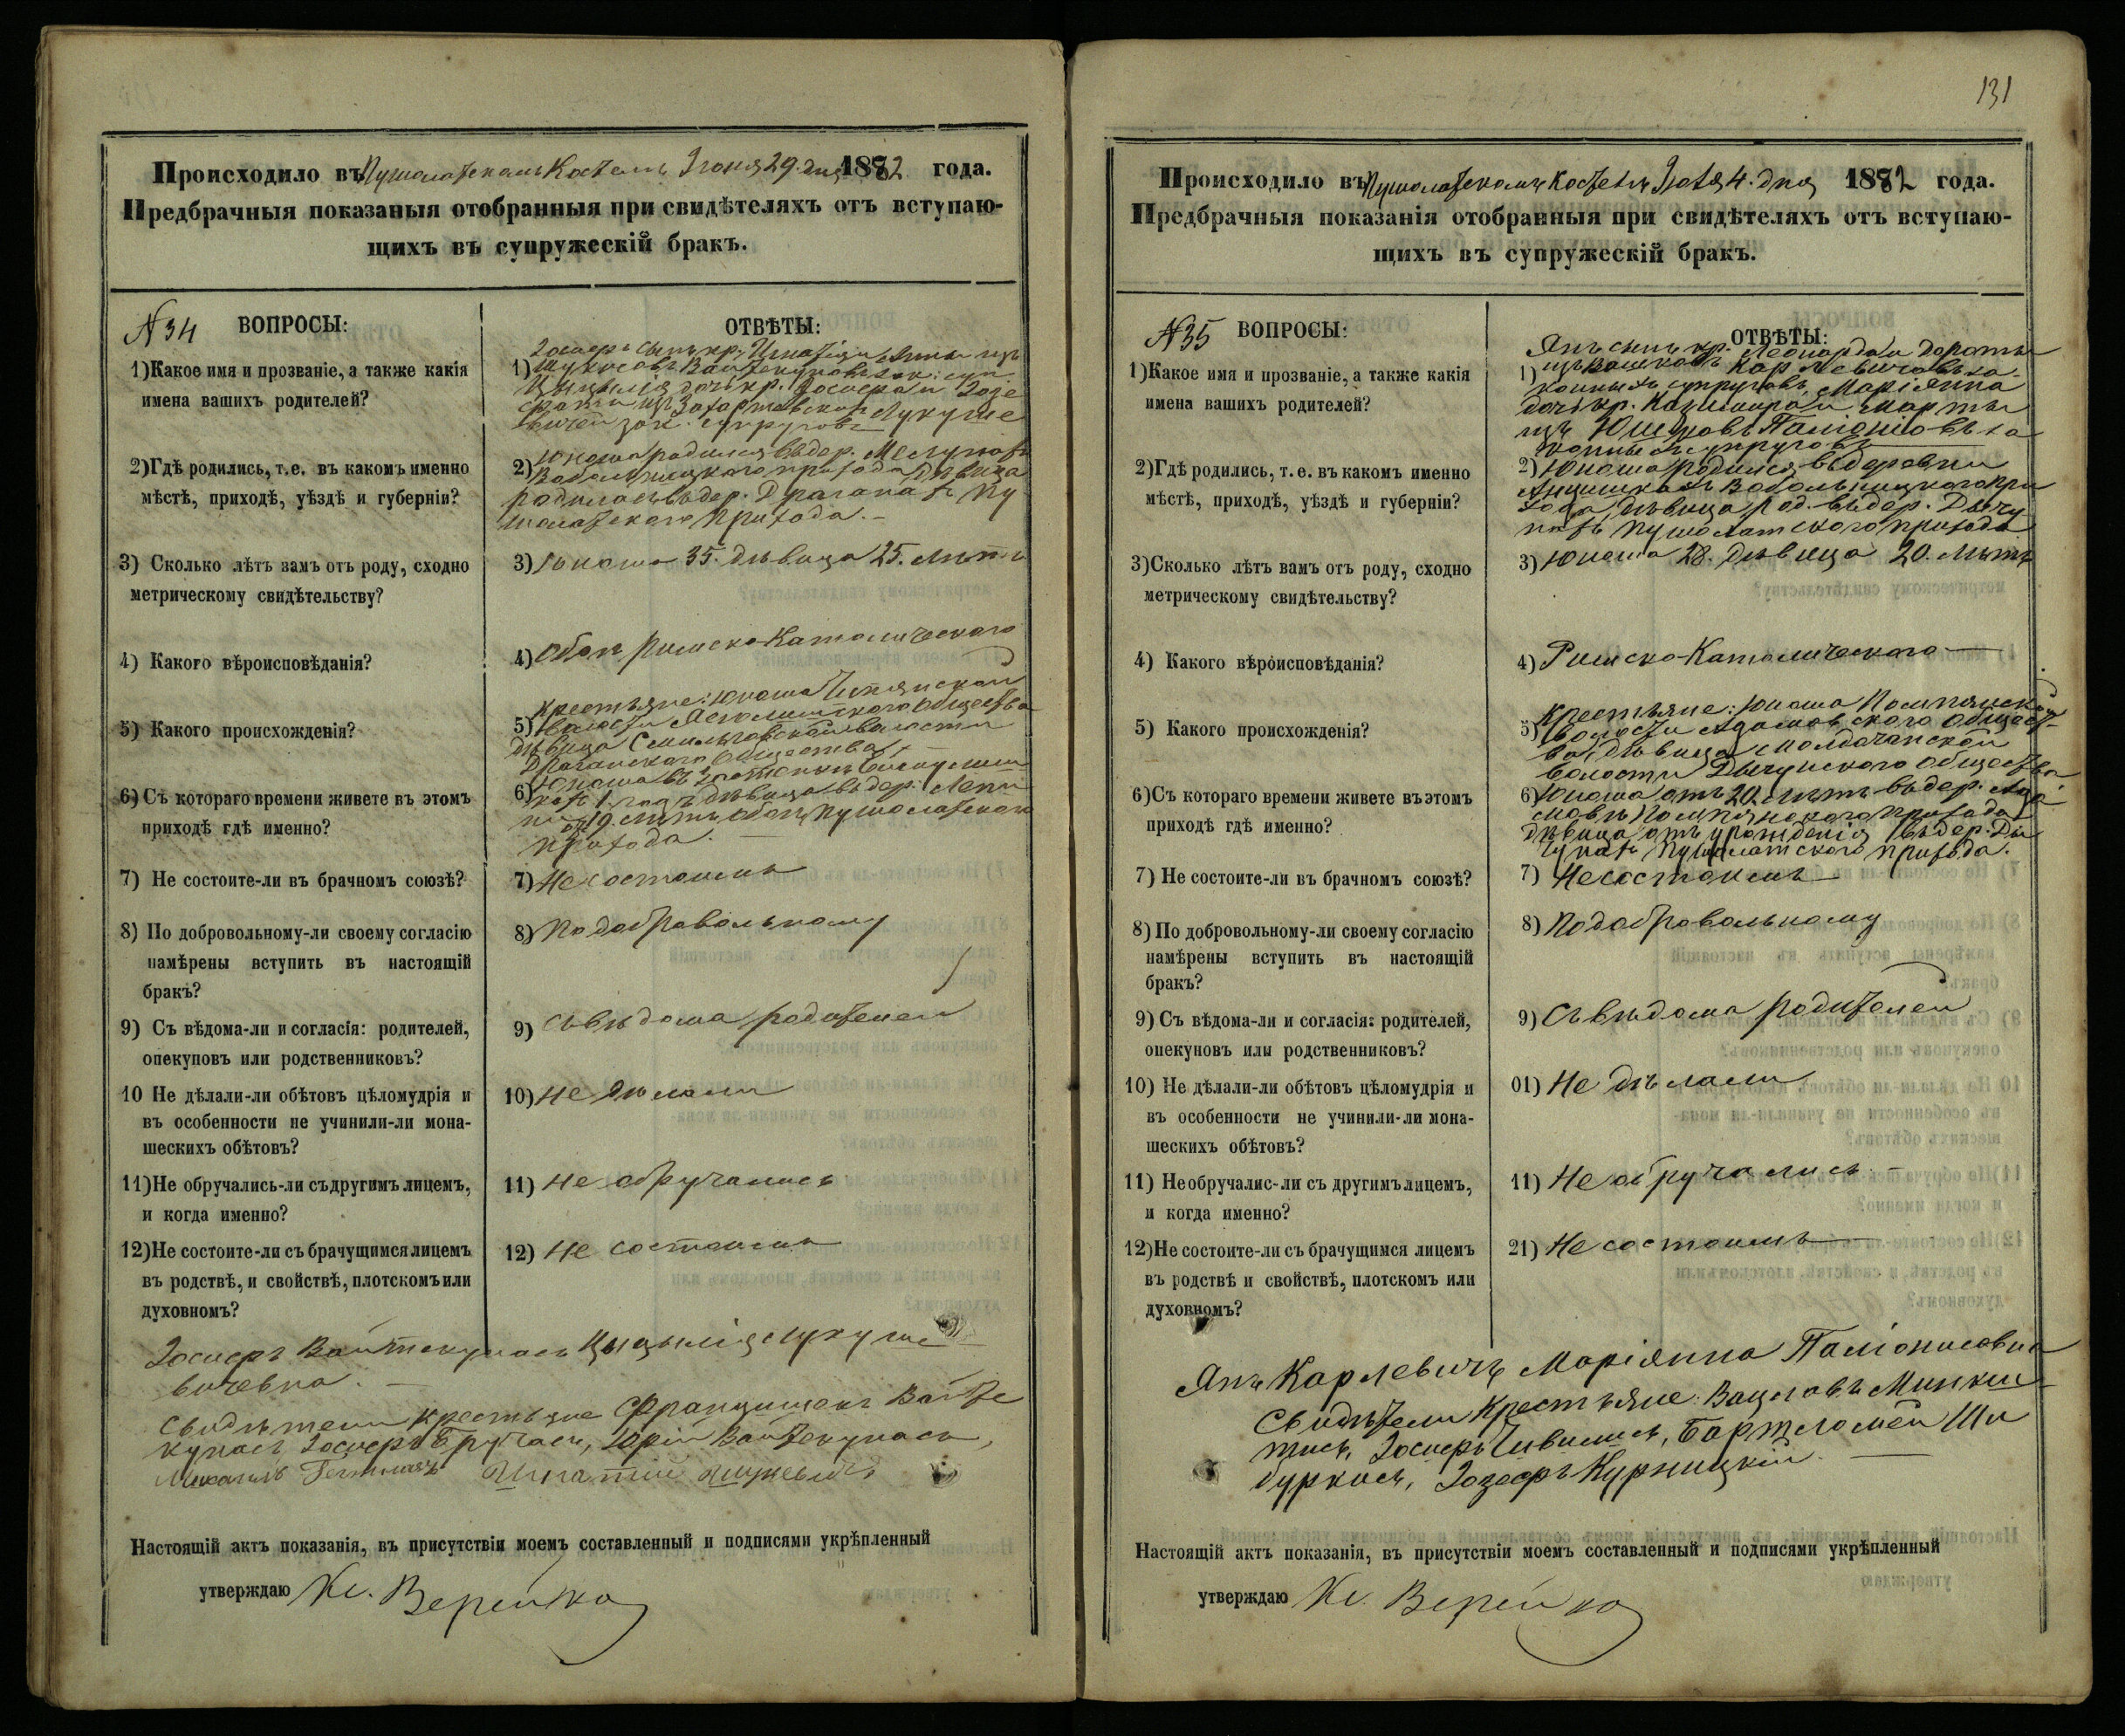 Происходило въ Пушолатскомъ Костелѣ Іюня 29. дня 1882 года.
Предбрачныя показаныя отобранныя при свидѣтеляхъ отъ вступаю-
щихъ въ супружескій бракъ.
N 34 ВОПРОСЫ:
ОТВѢТЫ:
1) Какое имя и прозваніе, а также какія
имена вашихъ родителей?
Іосифъ сынъ кр. Игнатія и Анны изъ
1)
дочь кр. Іосифа и Юзе
зак. супруговъ
2) Гдѣ родились, т. е. въ какомъ именно
мѣстѣ, приходѣ, уѣздѣ и губерніи?
2) Юноша родился въ дер.
Вабольницкаго прихода, дѣвица
родилась въ дер. Драганахъ Пу
шолатскаго прихода. –
3) Сколько лѣтъ вамъ отъ роду, сходно
метрическому свидѣтельству?
3) Юноша 35. дѣвица 25. лѣтъ
4) Какого вѣроисповѣданія?
4) Обои Римско-Католическаго
5) Какого происхожденія?
Крестьяне: юноша
5) волости общества
дѣвица волости
Драганскаго общества
6) Съ котораго времени живете въ этомъ
приходѣ гдѣ именно?
6) Юноша въ
1. годъ дѣвица въ дер.
19. лѣтъ обои Пушолатскаго
прихода.
7) Не состоите-ли въ брачномъ союзѣ?
7) Не состоимъ
8) По добровольному-ли своему согласію
намѣрены вступить въ настоящій
бракъ?
8) По добровольному
9) Съ вѣдома-ли и согласія: родителей,
опекуновъ или родственниковъ?
9) Съ вѣдома родителей
10 Не дѣлали-ли обѣтовъ цѣломудрія и
въ особенности не учинили-ли мона-
шескихъ обѣтовъ?
10) Не дѣлали
11) Не обручались-ли съ другимъ лицемъ,
и когда именно?
11) Не обручались
12) Не состоите-ли съ брачущимся лицемъ
въ родствѣ, и свойствѣ, плотскомъ или
духовномъ?
12) Не состоимъ
Іосифъ Войтекунасъ Цыцылія Лукуше
вичевна. –
Свидѣтели крестьяне Францишекъ Войте
кунасъ Іосифъ Юрій Войтекунасъ,
Игнатій
Настоящій актъ показанія, въ присутствіи моемъ составленный и подписями укрѣпленный
утверждаю Кс. Верейко
131
Происходило въ Пушолатскомъ Костелѣ Іюля 4. дня 1882 года.
Предбрачныя показанія отобранныя при свидѣтеляхъ отъ вступаю-
щихъ въ супружескій бракъ.
N 35 ВОПРОСЫ:
ОТВѢТЫ:
1) Какое имя и прозваніе, а также какія
имена вашихъ родителей?
Янъ сынъ кр. Леонарда и Дороты
1) изъ Карлевичовъ за-
конныхъ супруговъ, Маріянна
дочь кр. Казимира и Марты
изъ Паліонисовъ за
конныхъ супруговъ
2) Гдѣ родились, т. е. въ какомъ именно
мѣстѣ, приходѣ, уѣздѣ и губерніи?
2) Юноша родился въ деревни
Вабольницкаго при
хода, дѣвица род. въ дер. Дычу
нахъ Пушолатскаго прихода
3) Сколько лѣтъ вамъ отъ роду, сходно
метрическому свидѣтельству?
3) Юноша 28. дѣвица 20. лѣтъ
4) Какого вѣроисповѣданія?
4) Римско-Католическаго
5) Какого происхожденія?
Крестьяне: юноша Помпянской
5) волости Адамовскаго общест-
ва, дѣвица
волости Дычунскаго общества
6) Съ котораго времени живете въ этомъ
приходѣ гдѣ именно?
6) Юноша отъ 20. лѣтъ въ дер. Ада
мовѣ Помпянскаго прихода
дѣвица отъ урожденія въ дер. Ды
чунахъ Пушолатскаго прихода.
7) Не состоите-ли въ брачномъ союзѣ?
7) Не состоимъ
8) По добровольному-ли своему согласію
намѣрены вступить въ настоящій
бракъ?
8) По добровольному
9) Съ вѣдома-ли и согласія: родителей,
опекуновъ или родственниковъ?
9) Съ вѣдома родителей
10) Не дѣлали-ли обѣтовъ цѣломудрія и
въ особенности не учинили-ли мона-
шескихъ обѣтовъ?
01) Не дѣлали
11) Не обручалис-ли съ другимъ лицемъ,
и когда именно?
11) Не обручались –
12) Не состоите-ли съ брачущимся лицемъ
въ родствѣ и свойствѣ, плотскомъ или
духовномъ?
21) Не состоимъ
Янъ Карлевичъ Маріянна Паліонисовна
Свидѣтели Крестьяне: Вацлавъ Минкш
тись, Іосифъ Бартломей Ши
буркась, Іозефъ Курницкій.
Настоящій актъ показанія, въ присутствіи моемъ составленный и подписями укрѣпленный
утверждаю Кс. Верейко